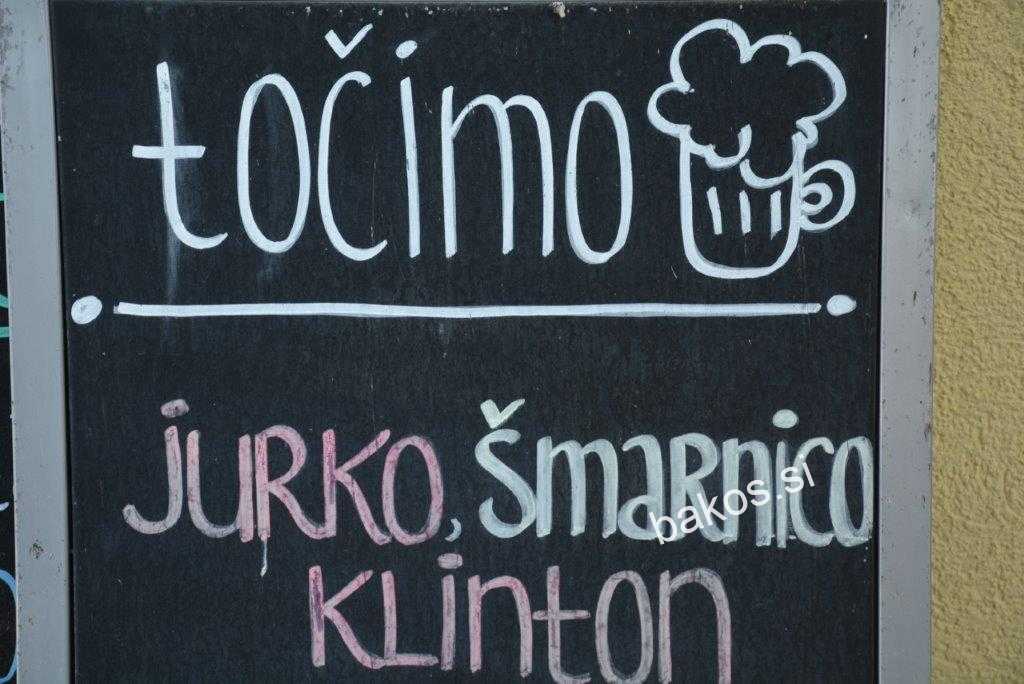 točimo
JURKO, ŠmaRnico
bakos.si
KLinton